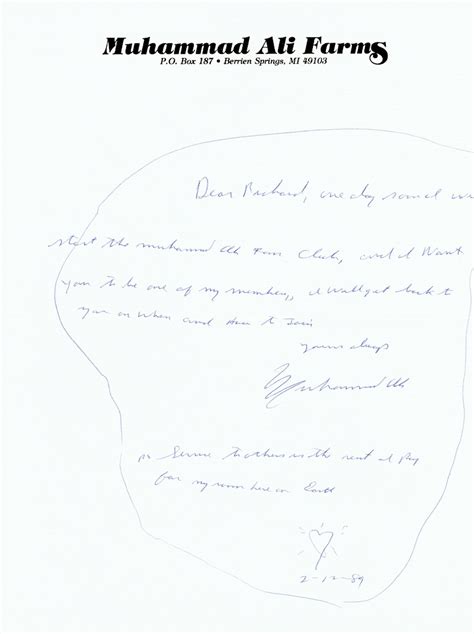 Muhammad Ali Farms
P.O. Box 187 • Berrien Springs, MI 49103
Dear Richard, one day soon I
start the muhammad Ali Fan Club, and I Want
You to be one of my members, I will get back to
you on When and How to Join
yours always
Muhammad Ali
ps Service to others is the rent I pay
for my room here on Earth
2-12-89